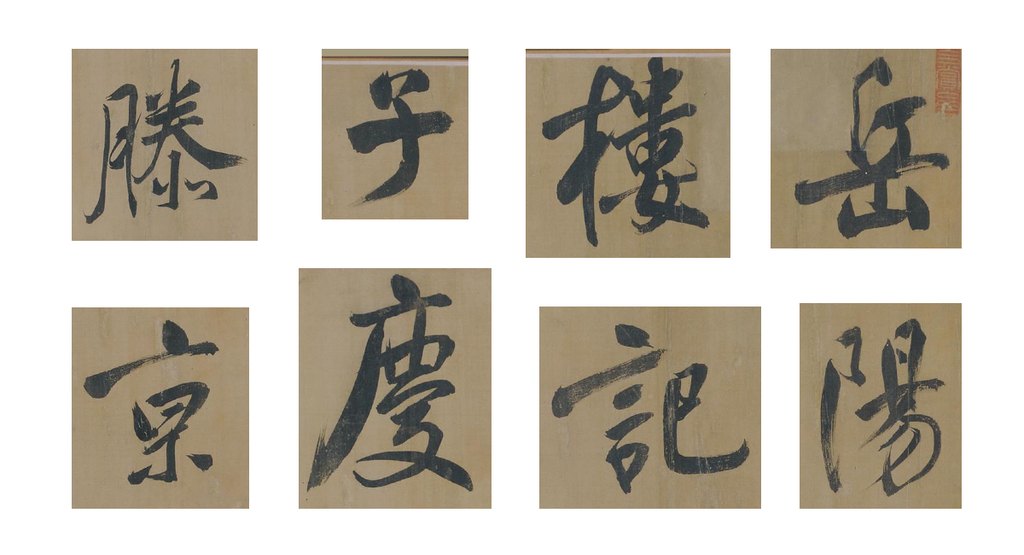 岳陽
樓記
子慶
滕京